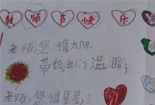 教师节快乐
老师,您像太阳,
带给我们温暖;
老师,您像星星,